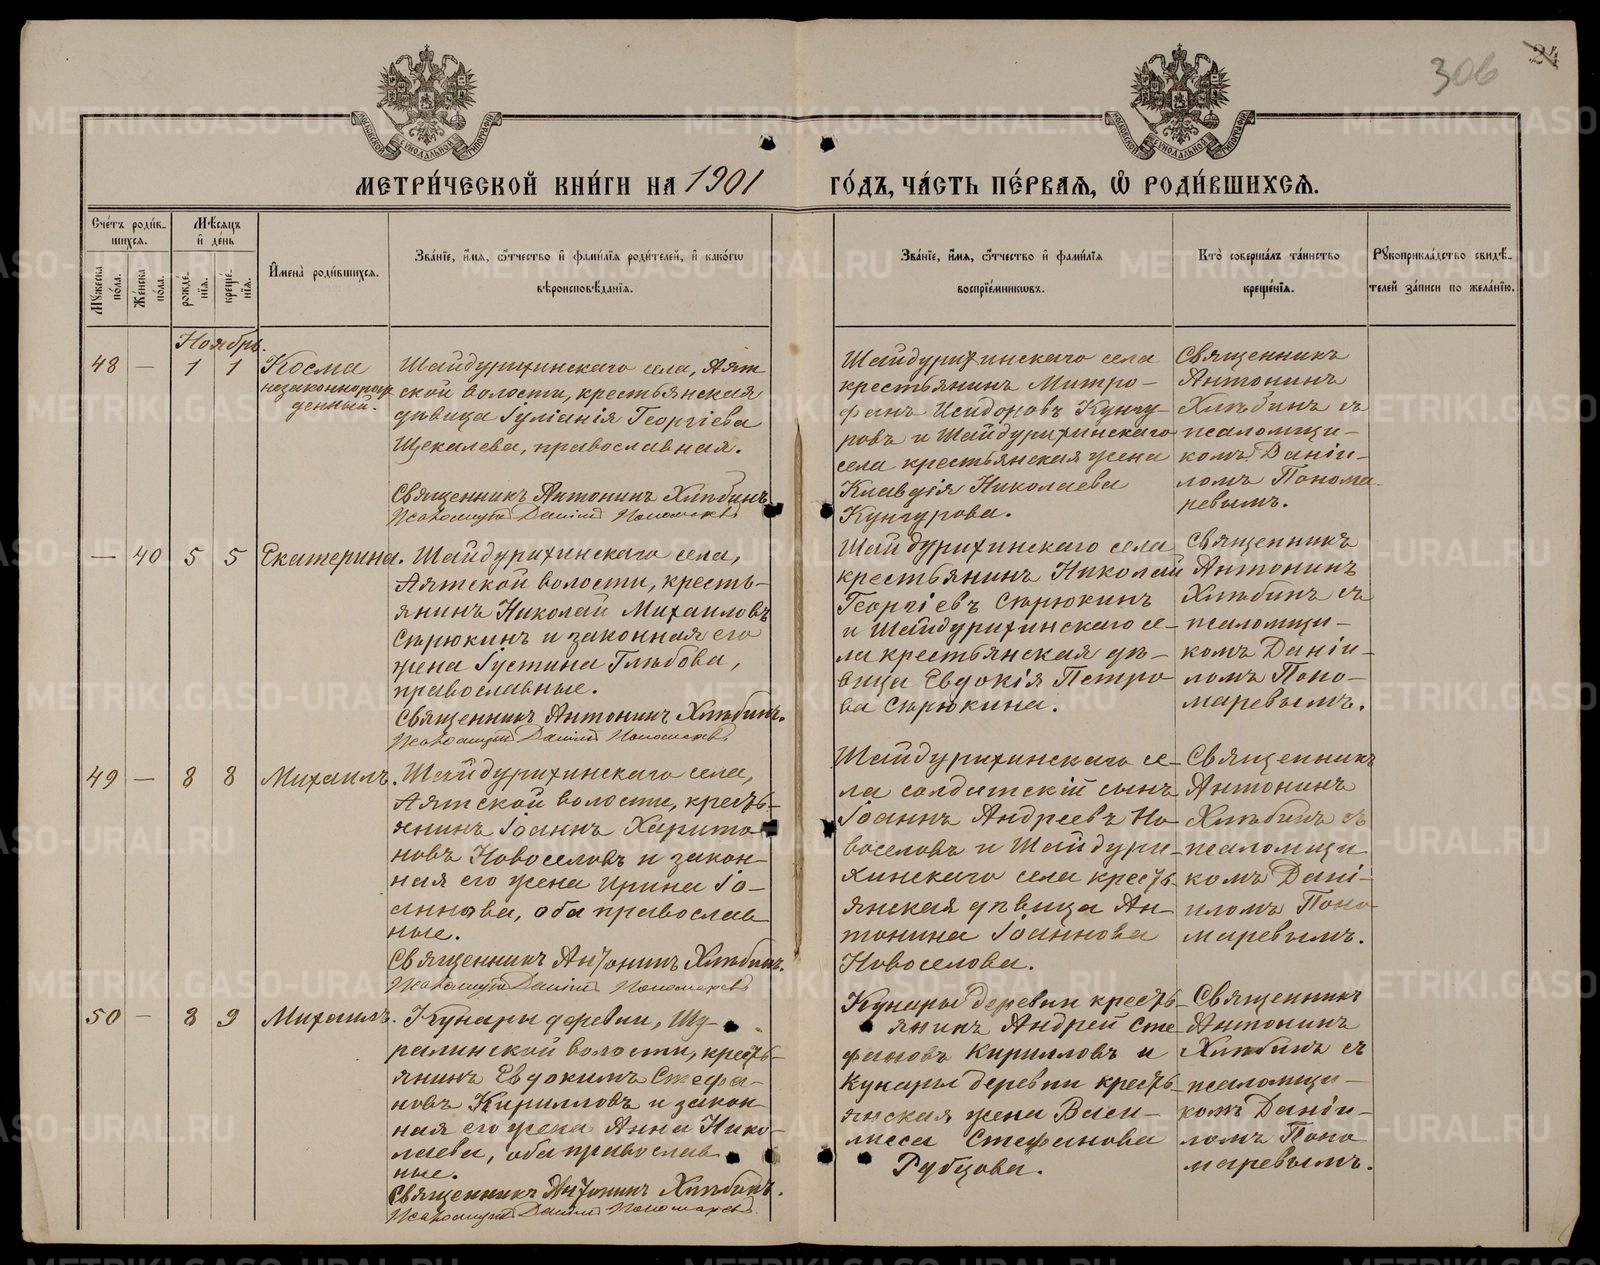 306
24
МЕТРИ́ЧЕСКОЙ КНИ́ГИ НА 1901
ГО́ДЪ, ЧА́СТЬ ПЕ́РВАѦ, Ѡ҆ РОДИ́ВШИХСѦ.
Сче́тъ роди́в-
шихсѧ.
Мѣ́сѧцъ
и҆ де́нь
Мꙋ́жеска по́ла.
Же́нска по́ла.
рожде́-
нїѧ.
креще́-
нїѧ.
И҆мена̀ роди́вшихсѧ.
Зва́нїе, и҆́мѧ, ѻ҆́тчество и҆ фамі́лїѧ роди́телей, и҆ како́гѡ
вѣроисповѣ́данїѧ.
Зва́нїе, и҆́мѧ, ѻ҆́тчество и҆ фамі́лїѧ
воспрїе́мникѡвъ.
Кто̀ соверша́лъ та́инство
креще́нїѧ.
Рꙋкоприкла́дство свидѣ́-
телей за́писи по жела́нїю.
Ноябрь.
48 — 1 1
Косма
незаконнорож
денный.
Шайдурихинскаго села, Аят
ской волости, крестьянская
дѣвица Іуліанія Георгіева
Щекалева, православная.
Священникъ Антонинъ Хлѣбинъ
Псаломщикъ Даніилъ Пономаревъ
Шайдурихинскаго села
крестьянинъ Митро-
фанъ Исидоровъ Кунгу-
ровъ и Шайдурихинскаго
села крестьянская жена
Клавдія Николаева
Кунгурова.
Священникъ
Антонинъ
Хлѣбинъ съ
псаломщи-
комъ Даніи-
ломъ Понома-
ревымъ.
— 40 5 5
Екатерина.
Шайдурихинскаго села,
Аятской волости, кресть-
янинъ Николай Михаиловъ
Сѣрюкинъ и законная его
жена Іустина Глѣбова,
православные.
Священникъ Антонинъ Хлѣбинъ.
Псаломщикъ Даніилъ Пономаревъ
Шайдурихинскаго села
крестьянинъ Николай
Георгіевъ Сѣрюкинъ
и Шайдурихинскаго се-
ла крестьянская дѣ-
вица Евдокія Петро
ва Сѣрюкина.
Священникъ
Антонинъ
Хлѣбинъ съ
псаломщи-
комъ Даніи-
ломъ Поно-
маревымъ.
49 — 8 8
Михаилъ.
Шайдурихинскаго села,
Аятской волости, кресть-
янинъ Іоаннъ Харито
новъ Новоселовъ и закон-
ная его жена Ирина Іо-
аннова, оба православ
ные.
Священникъ Антонинъ Хлѣбинъ.
Псаломщикъ Даніилъ Пономаревъ
Шайдурихинскаго се-
ла солдатскій сынъ
Іоаннъ Андреевъ Но-
воселовъ и Шайдури-
хинскаго села кресть-
янская дѣвица Ан-
тонина Іоаннова
Новоселова.
Священникъ
Антонинъ
Хлѣбинъ съ
псаломщи
комъ Дані-
иломъ Поно
маревымъ.
50 — 8 9
Михаилъ.
Кунары деревни, Шу-
ралинской волости, кресть-
янинъ Евдокимъ Стефа-
новъ Кирилловъ и закон
ная его жена Анна Нико-
лаева, оба православ
ные.
Священникъ Антонинъ Хлѣбинъ.
Псаломщикъ Даніилъ Пономаревъ
Кунары деревни кресть-
янинъ Андрей Сте
фановъ Кирилловъ и
Кунары деревни кресть-
янская жена Васи-
лисса Стефанова
Рубцова.
Священникъ
Антонинъ
Хлѣбинъ съ
псаломщи-
комъ Даніи-
ломъ Поно
маревымъ.
METRIKI.GASO-URAL.RU